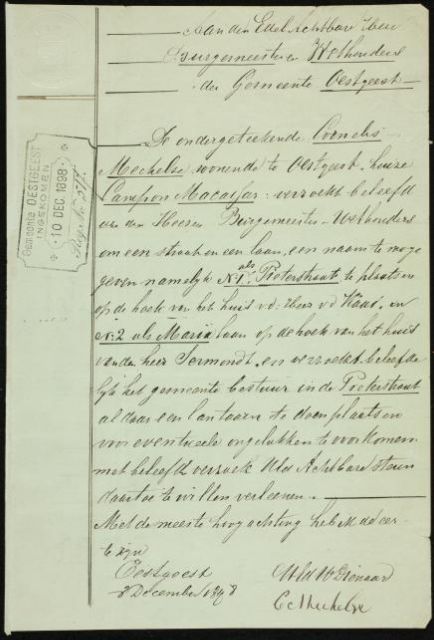 Aan den Edel Achtbare Heer
Burgemeester en Wethouders
der Gemeente Oestgeest
De ondergeteekende Cornelis
Mechelse wonende te Oestgeest, huize
Campron Macassar verzoekt beleefd
aan den Heeren Burgemeester Wethouders
om een straat en een laan, een naam te moge
geven namelijk No 1 als Pieterstraat te plaatsen
op de hoek van het huis v.d. Heer v.d. Kaas, en
No 2 als Maria laan op de hoek van het huis
van den heer Sermondt, en verzoekt beleefde
lijk het gemeente bestuur in de Pieterstraat
al daar een lantaarn te doen plaatsen
voor eventueele ongelukken te voorkomen
met beleefd verzoek UEd Achtbare steun
daartoe te willen verleenen.
Met de meeste hoogachting heb ik de eer
te zijn
Oestgeest
8 December 1898
UEd W Dienaar
C. Mechelse
Gemeente OESTGEEST
INGEKOMEN
10 DEC. 1898